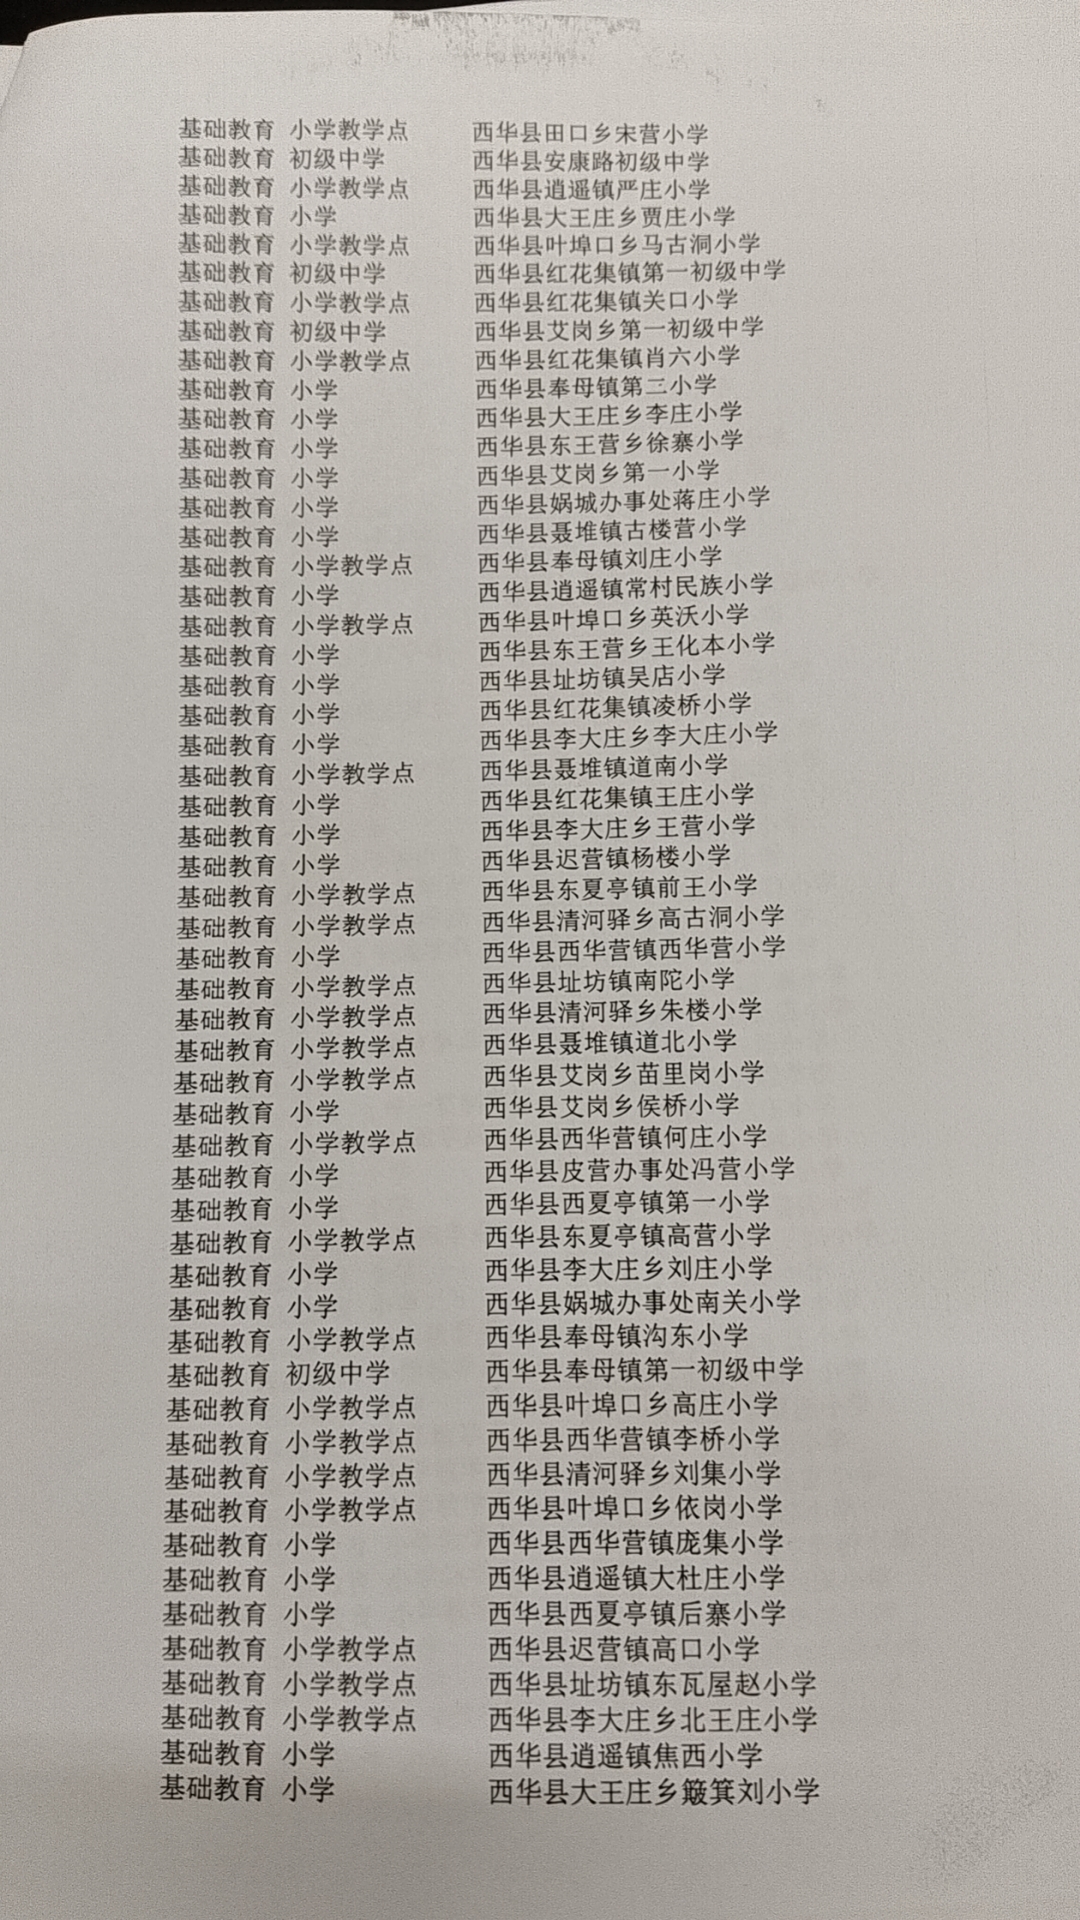 基础教育 小学教学点 西华县田口乡宋营小学
基础教育 初级中学 西华县安康路初级中学
基础教育 小学教学点 西华县逍遥镇严庄小学
基础教育 小学 西华县大王庄乡贾庄小学
基础教育 小学教学点 西华县叶埠口乡马古洞小学
基础教育 初级中学 西华县红花集镇第一初级中学
基础教育 小学教学点 西华县红花集镇关口小学
基础教育 初级中学 西华县艾岗乡第一初级中学
基础教育 小学教学点 西华县红花集镇肖六小学
基础教育 小学 西华县奉母镇第三小学
基础教育 小学 西华县大王庄乡李庄小学
基础教育 小学 西华县东王营乡徐寨小学
基础教育 小学 西华县艾岗乡第一小学
基础教育 小学 西华县娲城办事处蒋庄小学
基础教育 小学 西华县聂堆镇古楼营小学
基础教育 小学教学点 西华县奉母镇刘庄小学
基础教育 小学 西华县逍遥镇常村民族小学
基础教育 小学教学点 西华县叶埠口乡英沃小学
基础教育 小学 西华县东王营乡王化本小学
基础教育 小学 西华县址坊镇吴店小学
基础教育 小学 西华县红花集镇凌桥小学
基础教育 小学 西华县李大庄乡李大庄小学
基础教育 小学教学点 西华县聂堆镇道南小学
基础教育 小学 西华县红花集镇王庄小学
基础教育 小学 西华县李大庄乡王营小学
基础教育 小学 西华县迟营镇杨楼小学
基础教育 小学教学点 西华县东夏亭镇前王小学
基础教育 小学教学点 西华县清河驿乡高古洞小学
基础教育 小学 西华县西华营镇西华营小学
基础教育 小学教学点 西华县址坊镇南陀小学
基础教育 小学教学点 西华县清河驿乡朱楼小学
基础教育 小学教学点 西华县聂堆镇道北小学
基础教育 小学教学点 西华县艾岗乡苗里岗小学
基础教育 小学 西华县艾岗乡侯桥小学
基础教育 小学教学点 西华县西华营镇何庄小学
基础教育 小学 西华县皮营办事处冯营小学
基础教育 小学 西华县西夏亭镇第一小学
基础教育 小学教学点 西华县东夏亭镇高营小学
基础教育 小学 西华县李大庄乡刘庄小学
基础教育 小学 西华县娲城办事处南关小学
基础教育 小学教学点 西华县奉母镇沟东小学
基础教育 初级中学 西华县奉母镇第一初级中学
基础教育 小学教学点 西华县叶埠口乡高庄小学
基础教育 小学教学点 西华县西华营镇李桥小学
基础教育 小学教学点 西华县清河驿乡刘集小学
基础教育 小学教学点 西华县叶埠口乡依岗小学
基础教育 小学 西华县西华营镇庞集小学
基础教育 小学 西华县逍遥镇大杜庄小学
基础教育 小学 西华县西夏亭镇后寨小学
基础教育 小学教学点 西华县迟营镇高口小学
基础教育 小学教学点 西华县址坊镇东瓦屋赵小学
基础教育 小学教学点 西华县李大庄乡北王庄小学
基础教育 小学 西华县逍遥镇焦西小学
基础教育 小学 西华县大王庄乡簸箕刘小学